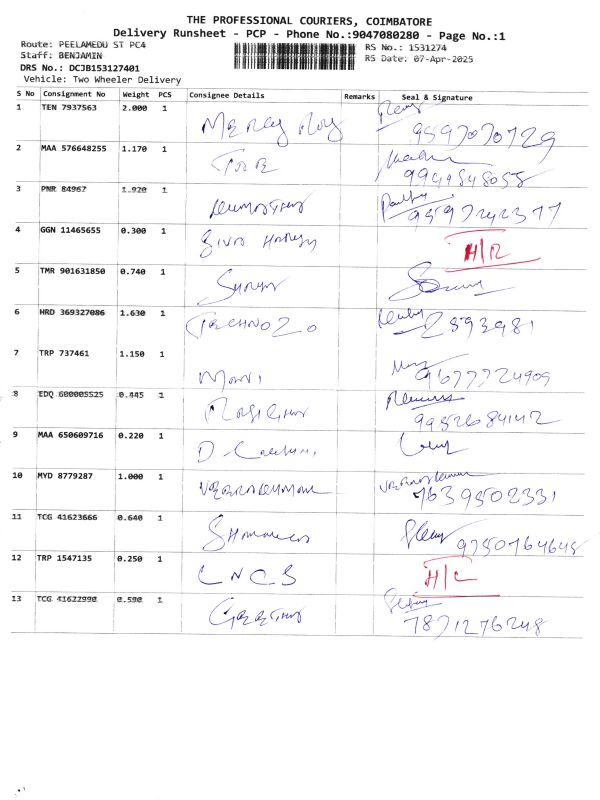 THE PROFESSIONAL COURIERS, COIMBATORE
Delivery Runsheet - PCP - Phone No.:9047080280 - Page No.:1
Route: PEELAMEDU ST PC4
RS No.: 1531274
Staff: BENJAMIN
RS Date: 07-Apr-2025
DRS No.: DCJB153127401
Vehicle: Two Wheeler Delivery
S No Consignment No Weight PCS Consignee Details Remarks Seal & Signature
1 TEN 7937563 2.000 1 Mercy Roy
9597070729
2 MAA 576648255 1.170 1
9994848058
3 PNR 84967 1.920 1
9597242377
4 GGN 11465655 0.300 1 Siva H/R
5 TMR 901631850 0.740 1
6 HRD 369327086 1.630 1 TECHNO 20 2593981
7 TRP 737461 1.150 1 Mani 9677724909
8 EDQ 600005525 0.445 1
9952684142
9 MAA 650609716 0.220 1 D.
10 MYD 8779287 1.000 1
7639502331
11 TCG 41623666 0.640 1
9750764648
12 TRP 1547135 0.250 1 LNCS H/C
13 TCG 41622990 0.590 1
7871276248